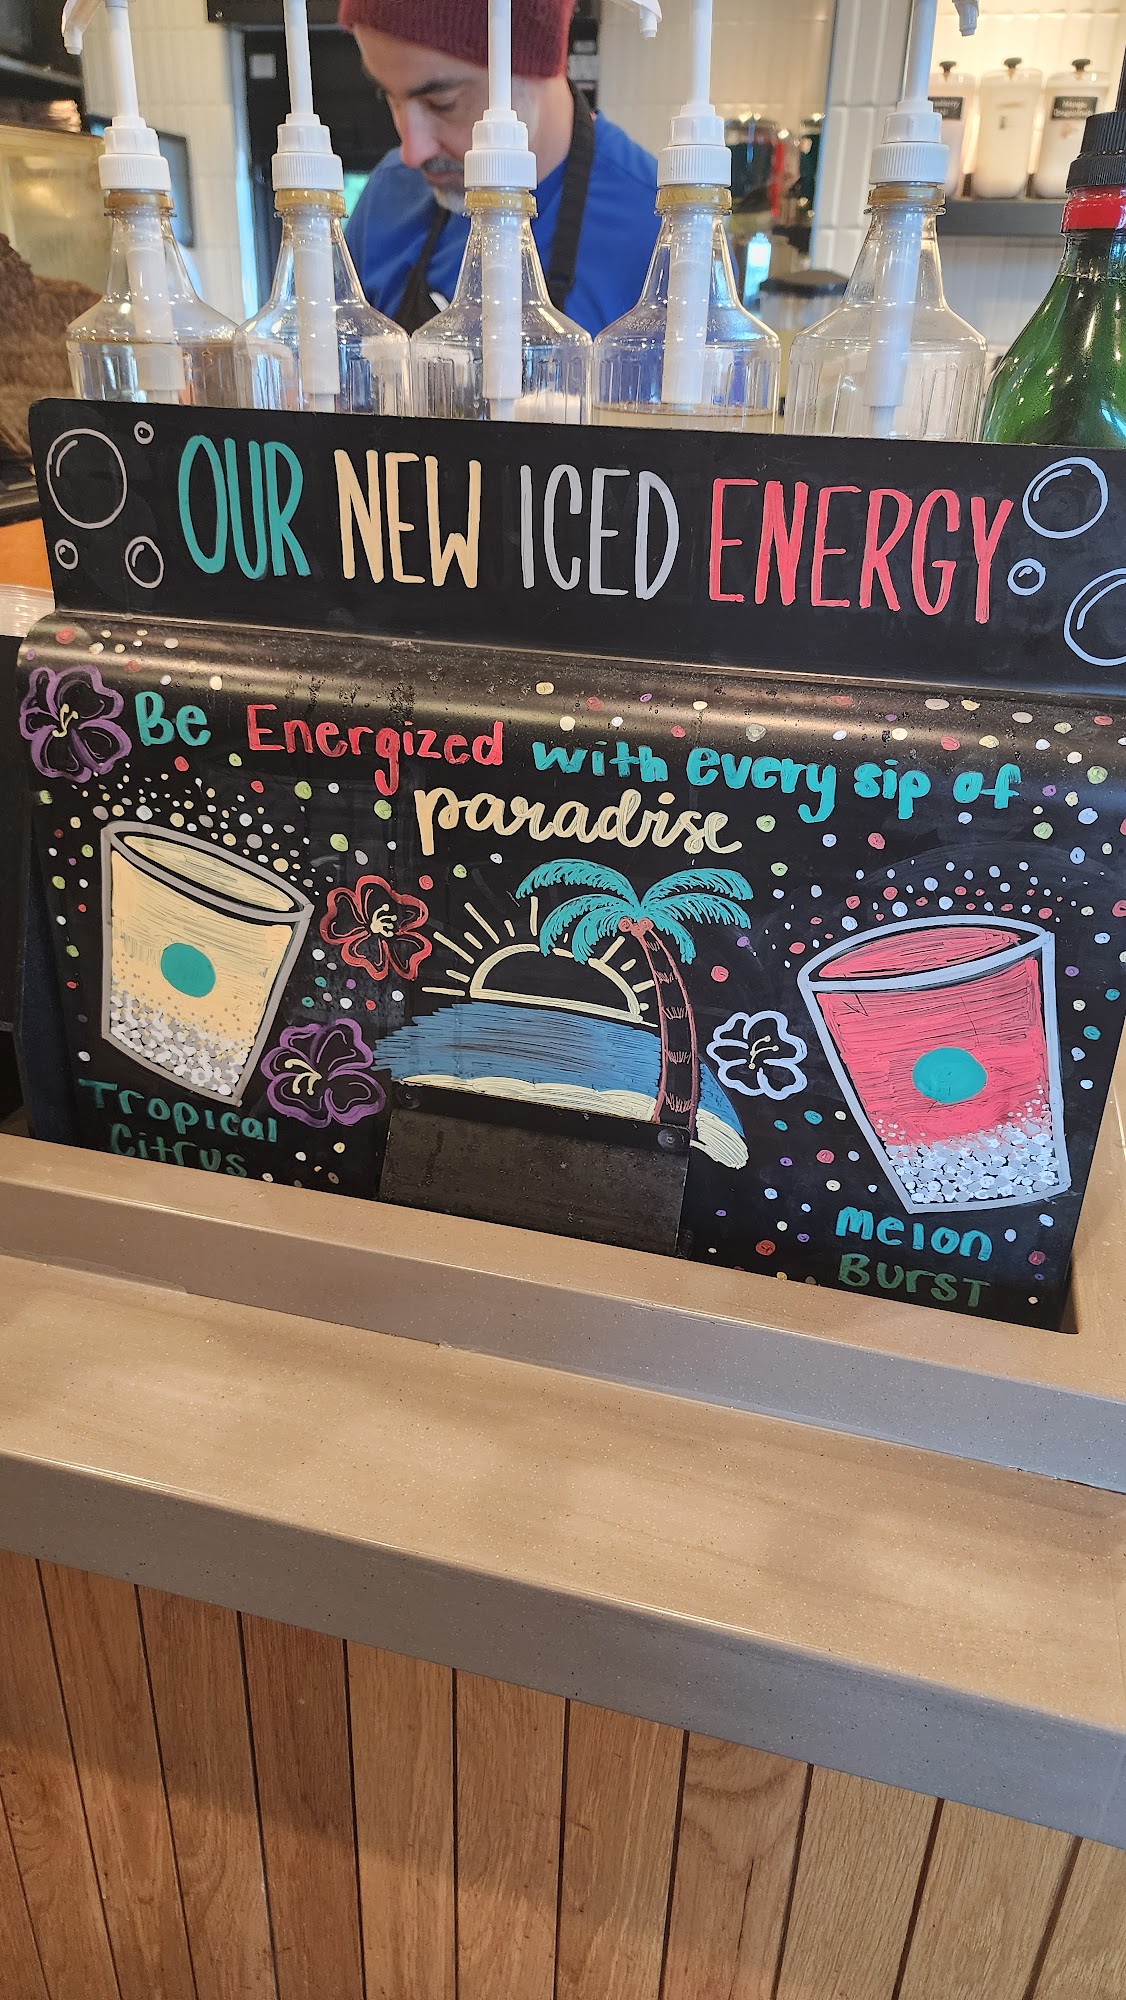 OUR NEW ICED ENERGY
Be Energized with every sip of
paradise
Tropical
Citrus
Melon
Burst